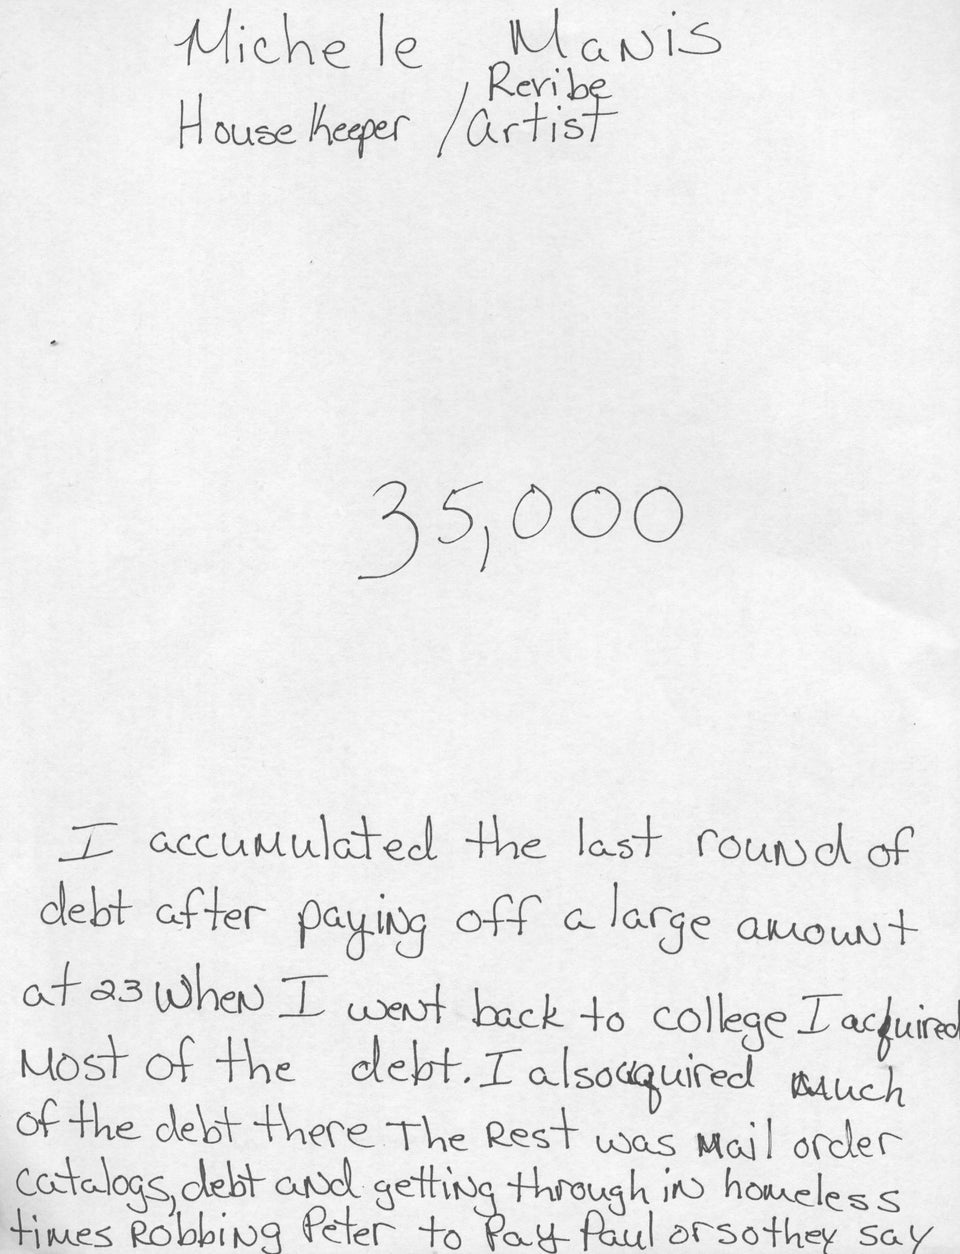 Michele Manis
Revibe
House Keeper / artist
35,000
I accumulated the last round of
debt after paying off a large amount
at 23 When I went back to college I acquired
Most of the debt. I also aquired Much
of the debt there The Rest was Mail order
catalogs, debt and getting through in homeless
times Robbing Peter to Pay Paul or so they say